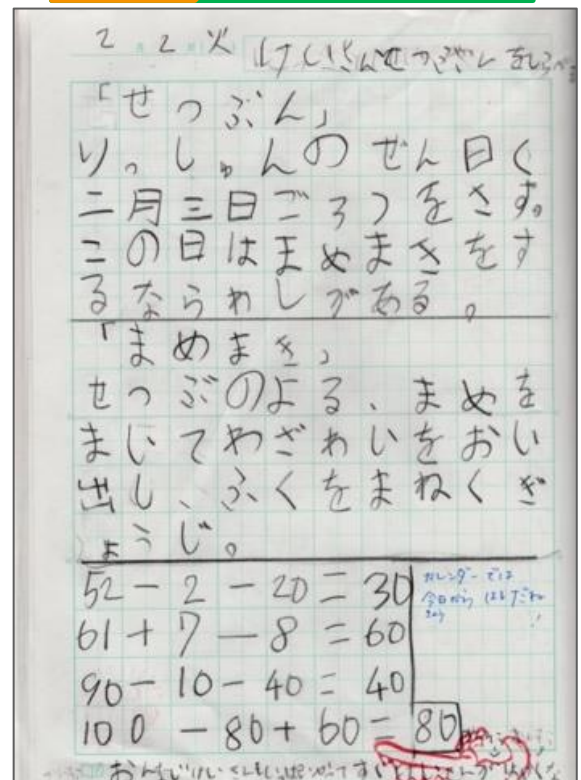 2 2 火 けいさんせつぶん をしらべ
「せつぶん」
りっしゅんのぜん日く
二月三日ごろつをさす。
この日はまめまきをす
るならわしがある。
「まめまき」
せつぶのよる、まめを
まいてやざわいをおい
出し、ふくをまねくぎ
ょうじ。
52－2－20＝30
61＋7－8＝60
90－10－40＝40
100－80＋60＝80
カレンダーでは
今日から